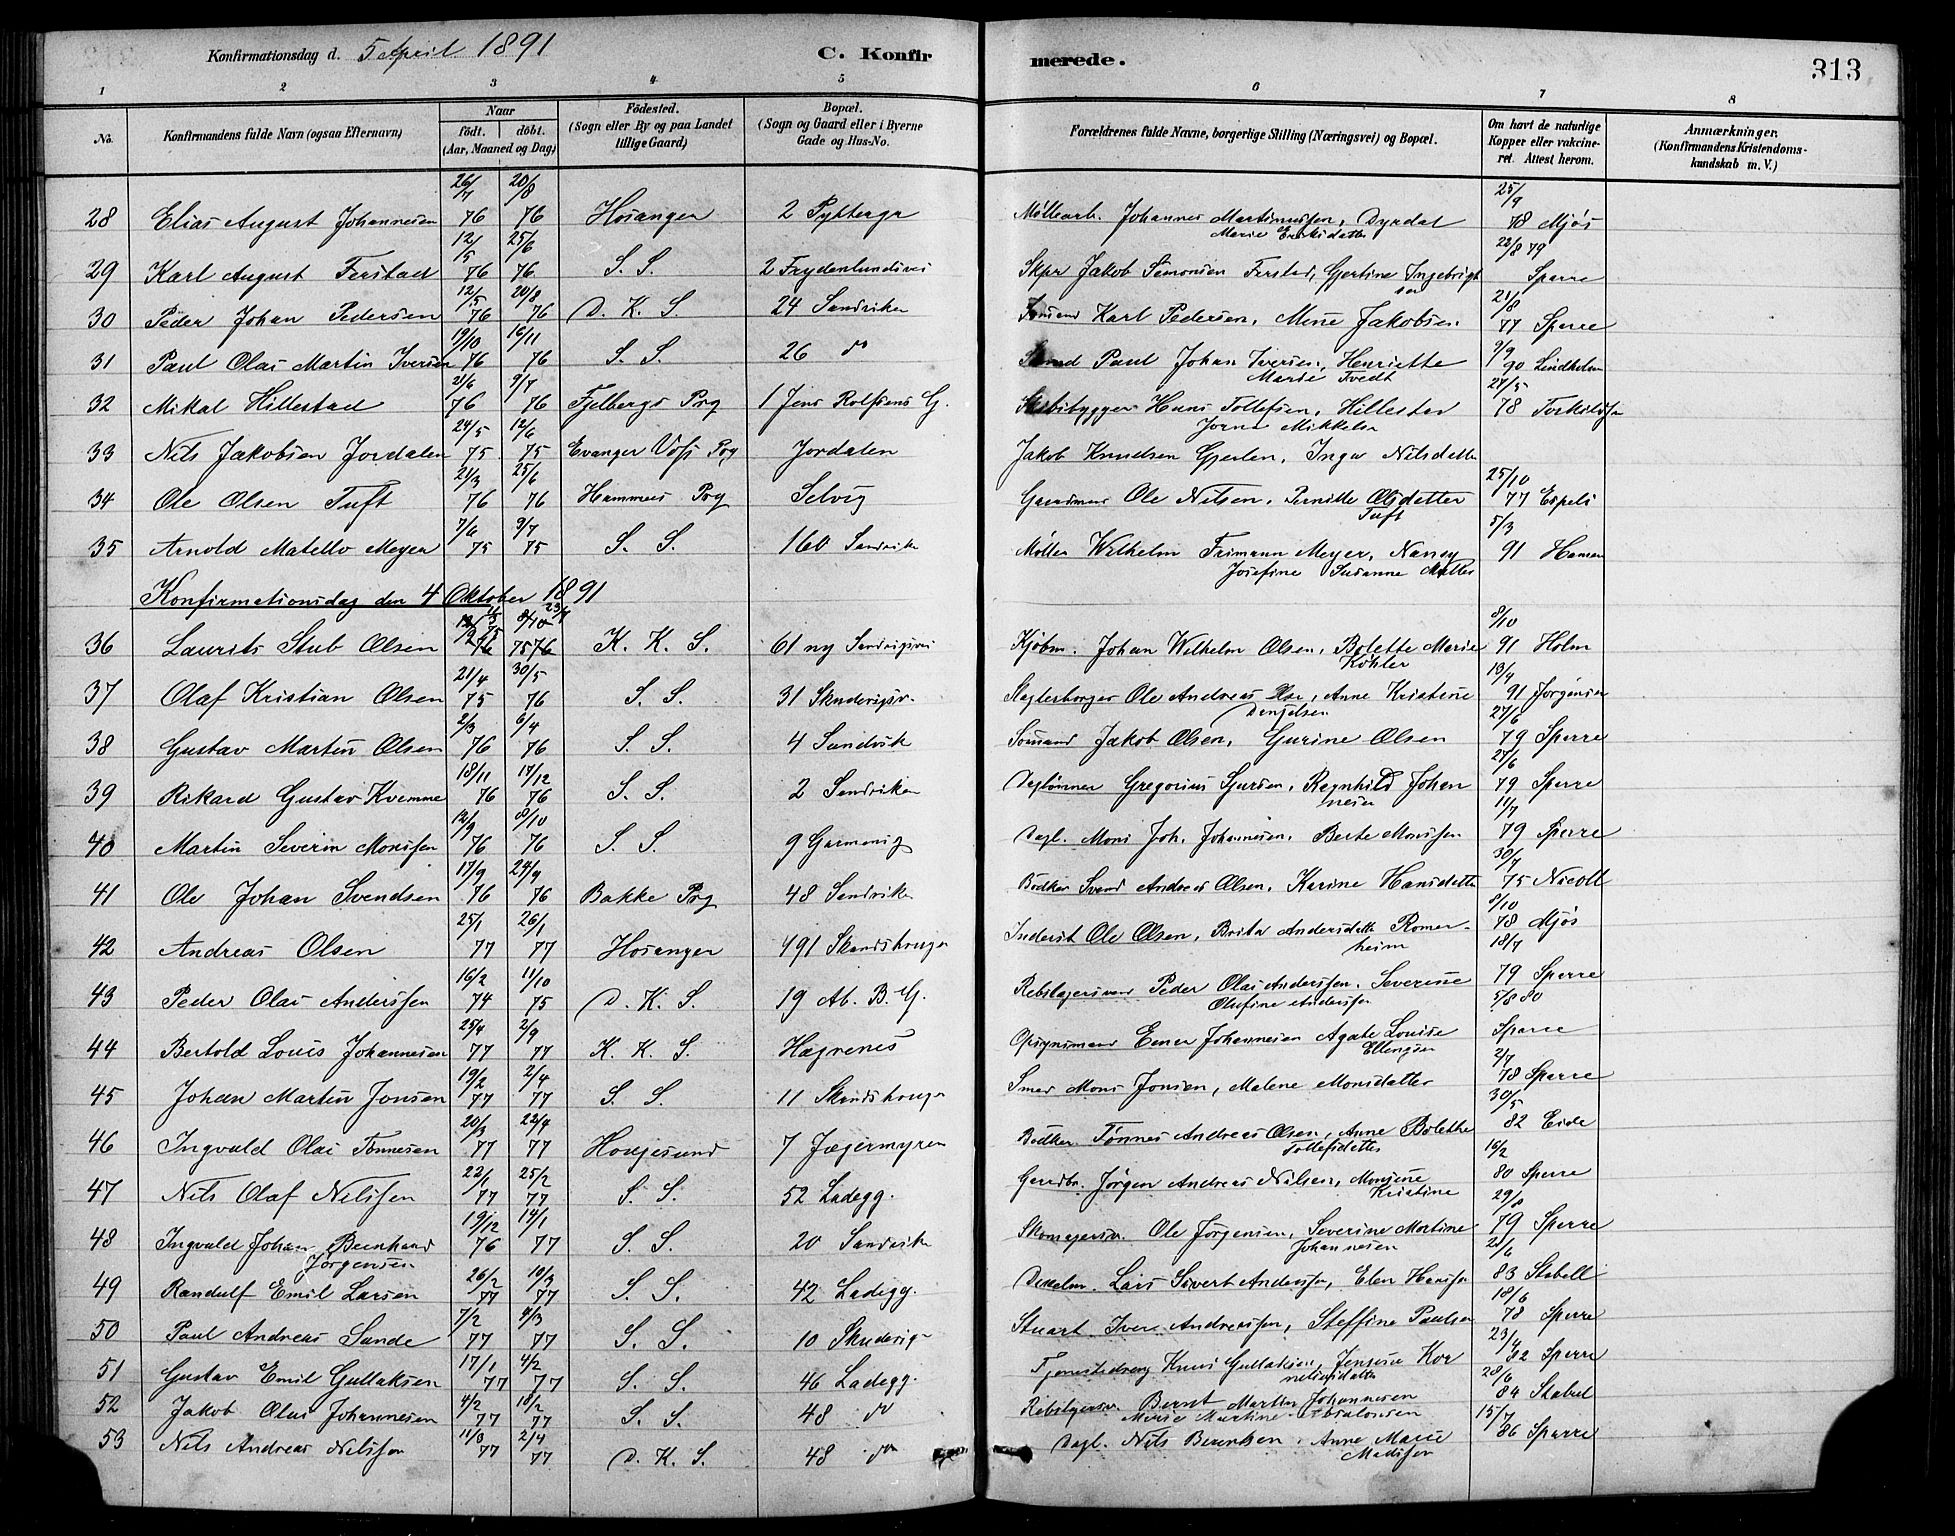 Konfirmationsdag d. 5 April 1891 C. Konfirmerede. 313
1 2 3 4 5 6 7 8
No. Konfirmandens fulde Navn (ogsaa Efternavn) Naar födt. döbt. (Aar, Maaned og Dag) Födested. (Sogn eller By og paa Landet tillige Gaard) Bopæl. (Sogn og Gaard eller i Byerne Gade og Hus-No. Forældrenes fulde Navne, borgerlige Stilling (Næringsvei) og Bopæl. Om havt de naturlige Kopper eller vakcineret. Attest herom. Anmærkninger. (Konfirmandens Kristendomskundskab m. V.)
28 Elias August Johannesen 26/7 76 20/8 76 Hosanger 2 Pyttergr Møllearb. Johannes Martinussen, Dyrdal 25/9 78 Mjös
Marie Eriksdatter
29 Karl August Ferstad 12/5 76 25/6 76 S. S. 2 Frydenlundsvei Skpr Jakob Simonsen Ferstad, Gjertine Ingebrigtsen 22/8 79 Sperre
30 Peder Johan Pedersen 12/5 76 20/8 76 D. K. S. 24 Sandviken Karl Pedersen, Mine Jakobsen 21/8 77 Sperre
31 Paul Olai Martin Iversen 19/10 76 16/11 76 S. S. 26 do Paul Johan Iversen, Henriette 9/9 90 Lindholm
Marie Tvedt
32 Mikal Hillestad 21/6 76 9/7 76 Fjelbergs Prg 1 Jens Rolfsens G. Skibsbygger Hans Tollefsen, Hillestad 27/5 78 Torkildsen
Jorine Mikkelsen
33 Nils Jakobsen Jordalen 24/5 75 12/6 75 Evanger Voss Prg Jordalen Jakob Knudsen Gjerlen, Inga Nilsdatter
34 Ole Olsen Tuft 21/3 76 25/6 76 Hammers Prg Selvig Gaardmand Ole Nilsen, Pernille Olsdatter 25/10 77 Espeli
Tuft
35 Arnold Matello Meyer 7/6 75 9/7 75 S. S. 160 Sandviken Møller Wilhelm Frimann Meyer, Nancy 5/3 91 Hansen
Josefine Susanne Møller
Konfirmationsdag den 4 Oktober 1891
36 Laurits Stub Olsen K. K. S. 61 ny Sandvigsvei Kjøbm. Johan Wilhelm Olsen, Bolette Marie 8/10 91 Holm
Köhler
37 Olaf Kristian Olsen 21/4 75 30/5 76 S. S. 31 Skuderigsv. Ole Andreas Olsen, Anne Kristine 13/4 91 Jørgensen
38 Gustav Martin Olsen 2/3 76 6/4 76 S. S. 4 Sandvik Sømand Jakob Olsen, Gurine Olsen 27/6 79 Sperre
39 Rikard Gustav Kvamme 18/11 76 17/12 76 S. S. 2 Sandviken Daglønner Gregorius Sjursen, Ragnhild Johannesen 27/6 79 Sperre
40 Martin Severin Monssen 12/9 76 8/10 76 S. S. 9 Garmanig Dagl. Mons Joh. Johannesen, Berte Monssen 11/7 79 Sperre
41 Ole Johan Svendsen 17/9 76 24/9 76 Bakke Prg 48 Sandviken Bødker Svend Andreas Olsen, Karine Hansdatter 30/7 75 Nicoll
42 Andreas Olsen 25/1 77 26/1 77 Hosanger 491 Skandshougen Inderst Ole Olsen, Brita Andersdatter Romerheim 8/10 78 Mjös
43 Peder Olai Anderssen 16/2 74 11/10 75 D. K. S. 19 Ab. B. G. Rebslagersvend Peder Olai Anderssen, Severine 18/7 79 Sperre
Olufine Anderssen
44 Bertold Louis Johannesen 25/4 77 2/9 77 K. K. S. Hægrenes Opsynsmand Einer Johannesen Agate Louise 5/8 80 Sperre
Ellingsen
45 Johan Martin Jonsen 19/2 77 2/4 77 S. S. 11 Skandshougen Smed Mons Jonsen, Malene Monsdatter 2/7 78 Sperre
46 Ingvald Olai Tønnesen 20/3 77 22/4 77 Hougesund 7 Jægermyren Bødker Tønnes Andreas Olsen, Anne Bolette 30/5 82 Eide
Tollefsdatter
47 Nils Olaf Nilssen 22/1 77 25/2 77 S. S. 52 Ladegg. Jørgen Andreas Nilsen, Monsine 16/2 80 Sperre
Kristine
48 Ingvald Johan Bernhard 19/12 76 14/1 77 S. S. 20 Sandvik Skomagersv. Ole Jørgensen, Severine Martine 29/8 79 Sperre
Jørgensen Johannesen
49 Randulf Emil Larsen 26/2 77 10/3 77 S. S. 42 Ladegg. Lars Sivert Anderssen, Elen Hanssen 21/6 83 Stabell
50 Paul Andreas Sande 7/2 77 4/3 77 S. S. 10 Skuderig Stuart Iver Andreassen, Steffine Paulsen 18/6 78 Sperre
51 Gustav Emil Gullaksen 17/1 77 4/2 77 S. S. 46 Ladegg. Knut Gullaksen, Jensine Kornelius datter 23/4 82 Sperre
52 Jakob Olai Johannesen 4/2 77 18/2 77 S. S. 48 do Rebslagersv. Bernt Martin Johannesen 28/6 84 Stabel
Marie Martine Absalonsen
53 Nils Andreas Nilssen 11/3 77 2/4 77 D. K. S. 48 do Dagl. Nils Berentsen, Anne Marie 15/7 86 Sperre
Madssen